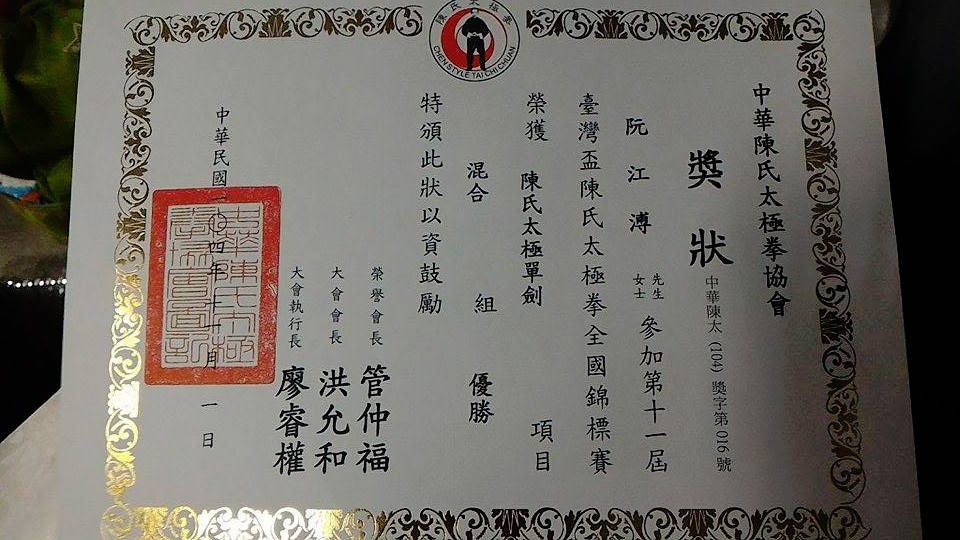 陳氏太極拳
CHEN STYLE TAI CHI CHUAN
中華陳氏太極拳協會
獎狀
中華陳太(104)獎字第016號
阮江溥 先生 女士 參加第十一屆
臺灣盃陳氏太極拳全國錦標賽
榮獲 陳氏太極單劍 項目
混合 組 優勝
特頒此狀以資鼓勵
榮譽會長 管仲福
大會會長 洪允和
大會執行長 廖睿權
中華民國一〇四年十一月一日